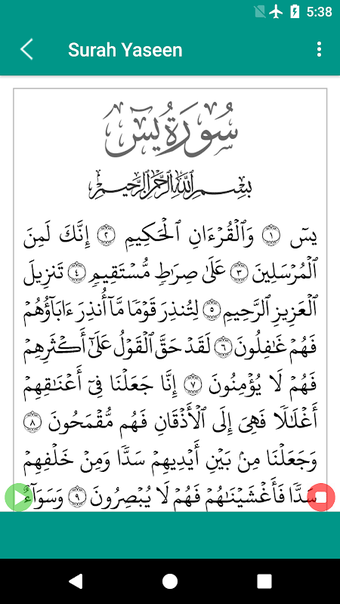 5:38
Surah Yaseen
سُورَةُ يسٓ
بِسْمِ ٱللَّهِ ٱلرَّحْمَٰنِ ٱلرَّحِيمِ
يسٓ ١ وَٱلْقُرْءَانِ ٱلْحَكِيمِ ٢ إِنَّكَ لَمِنَ
ٱلْمُرْسَلِينَ ٣ عَلَىٰ صِرَٰطٍ مُّسْتَقِيمٍ ٤ تَنزِيلَ
ٱلْعَزِيزِ ٱلرَّحِيمِ ٥ لِتُنذِرَ قَوْمًا مَّآ أُنذِرَ ءَابَآؤُهُمْ
فَهُمْ غَٰفِلُونَ ٦ لَقَدْ حَقَّ ٱلْقَوْلُ عَلَىٰٓ أَكْثَرِهِمْ
فَهُمْ لَا يُؤْمِنُونَ ٧ إِنَّا جَعَلْنَا فِىٓ أَعْنَٰقِهِمْ
أَغْلَٰلًا فَهِىَ إِلَى ٱلْأَذْقَانِ فَهُم مُّقْمَحُونَ ٨
وَجَعَلْنَا مِنۢ بَيْنِ أَيْدِيهِمْ سَدًّا وَمِنْ خَلْفِهِمْ
سَدًّا فَأَغْشَيْنَٰهُمْ فَهُمْ لَا يُبْصِرُونَ ٩ وَسَوَآءٌ